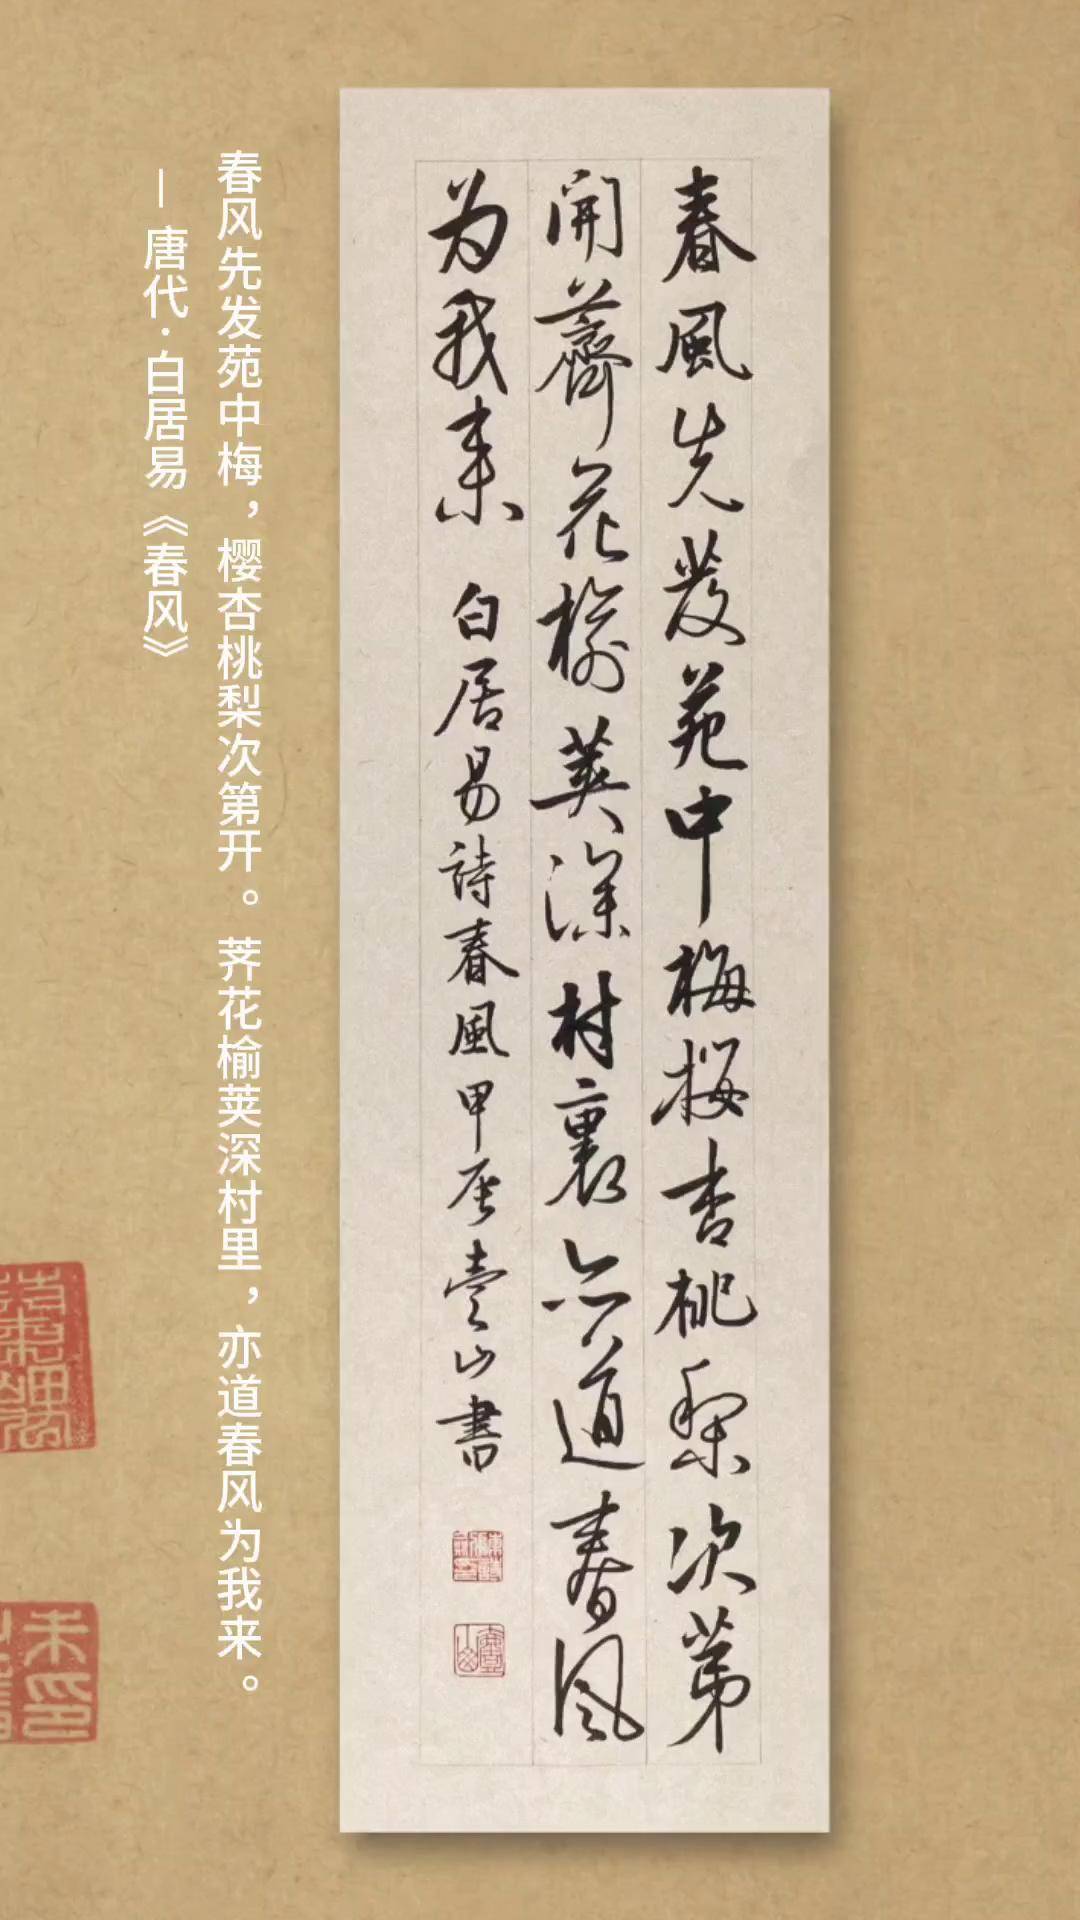 春風先發苑中梅櫻杏桃梨次第
開薺花榆莢深村裏亦道春風
为我来 白居易詩春風甲辰壹山書
春风先发苑中梅，樱杏桃梨次第开。荠花榆荚深村里，亦道春风为我来。
— 唐代·白居易《春风》